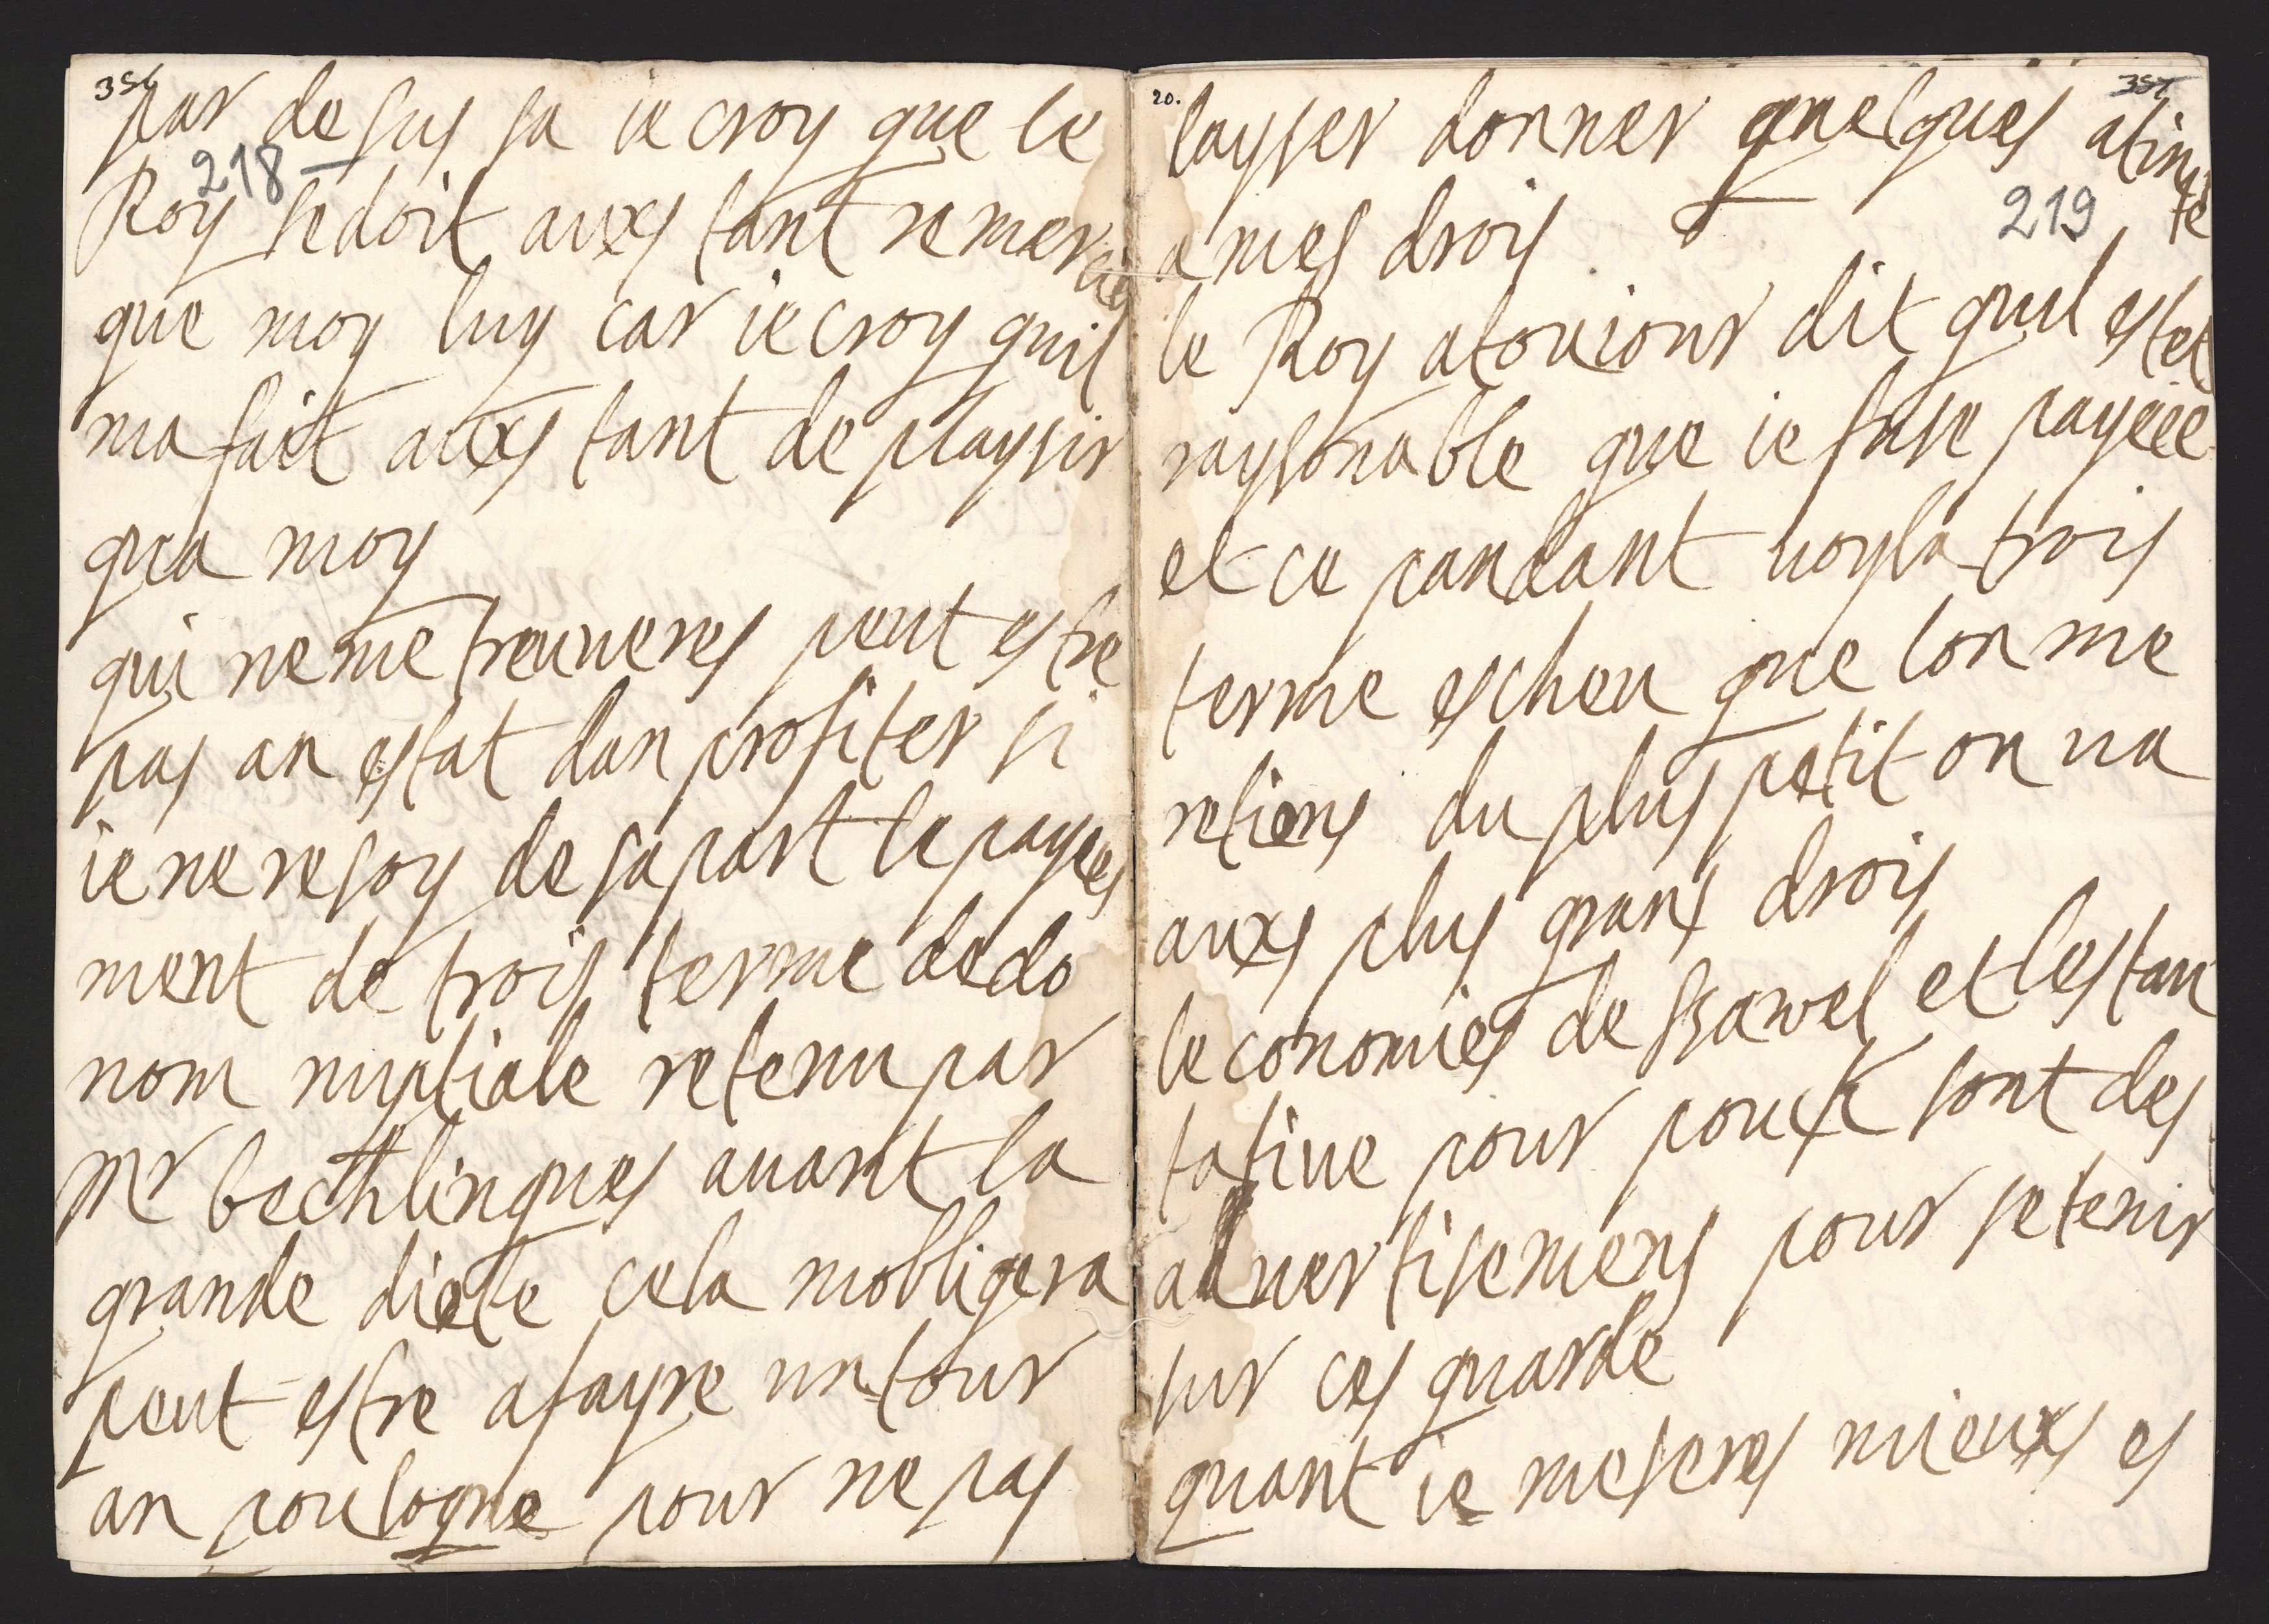 356
par de sus sa ie croy que le
218
Roy se doit auxs tant remer
cie
que moy luy car ie croy quil
ma fait auxs tant de playsir
qua moy
qui ne me treuueres peut estre
pas an estat dan profiter si
ie ne resoy de sa part le payee
ment de trois terme de do
nom nuptiale retenu par
Mr bechlingues auant la
grande diete cela mobligera
peut estre a fayre un tour
an poulogne pour ne pas
20.
357
layser donner quelques atin
te
219
a mes drois
le Roy a touiour dit quil estet
raysonable que ie fuse payeee
et ce pandant uoyla trois
terme escheu que lon me
retiens du plus petit on ua
auxs plus grans drois
leconomies de et lestan
tatiue pour sont des
aduertisemens pour se tenir
sur ces guarde
quant ie me seres mieuxs es